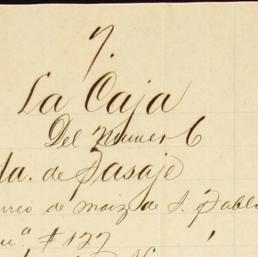 7.
La Caja
Del Numer 6
da. de Pasaje
de maiz de S. Pablo
# 127